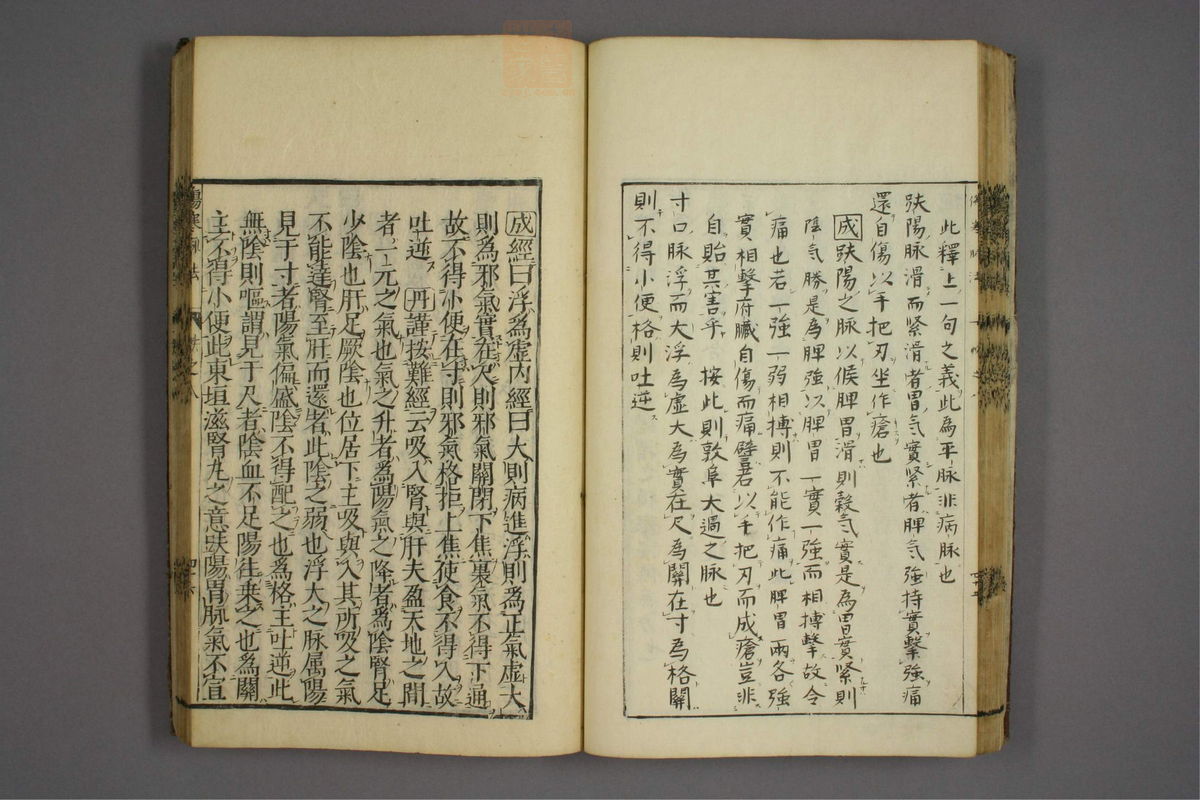 此釋上一句之義此為平脉非病脉也
趺陽脉滑而緊滑者胃氣實緊者脾氣強持實擊強痛
還自傷以手把刃坐作瘡也
成趺陽之脉以候脾胃滑則穀氣實是為胃實緊則
陰氣勝是為脾強以脾胃一實一強而相搏擊故令
痛也若一強一弱相搏則不能作痛此脾胃兩各強
實相擊府臟自傷而痛譬若以手把刃而成瘡豈非
自貽其害乎 按此則敦阜大過之脉也
寸口脉浮而大浮為虛大為實在尺為關在寸為格關
則不得小便格則吐逆
成經曰浮為虛內經曰大則病進浮則為正氣虛大
則為邪氣實在尺則邪氣關閉下焦裏氣不得下通
故不得小便在寸則邪氣格拒上焦使食不得入故
吐逆 丹謹按難經云吸入腎與肝夫盈天地之間
者一元之氣也氣之升者為陽氣之降者為陰腎足
少陰也肝足厥陰也位居下主吸與入其所吸之氣
不能達腎至肝而還者此陰之弱也浮大之脉属陽
見于寸者陽氣偏盛陰不得配之也為格主吐逆此
無陰則嘔謂見于尺者陰血不足陽往乗之也為關
主不得小便此東垣滋腎丸之意趺陽胃脉氣不宜